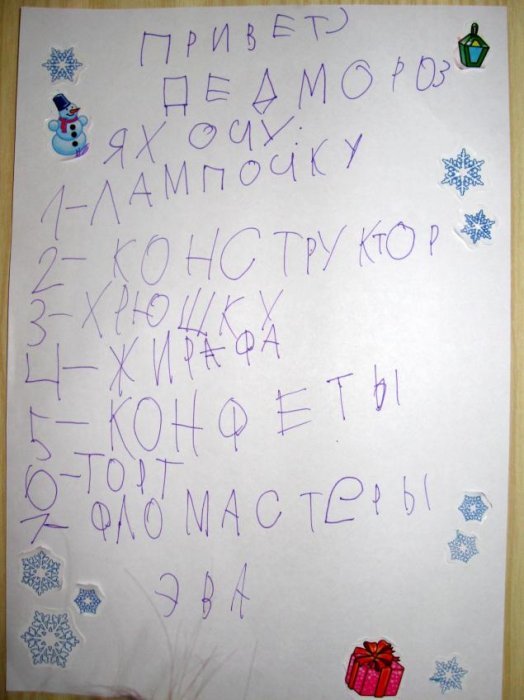 ПРИВЕТ
ДЕД МОРОЗ
Я ХОЧУ:
1-ЛАМПОЧКУ
2-КОНСТРУКТОР
3-ХРЮШКУ
4-ЖИРАФА
5-КОНФЕТЫ
6-ТОРТ
7-ФЛОМАСТЕРЫ
ЭВА